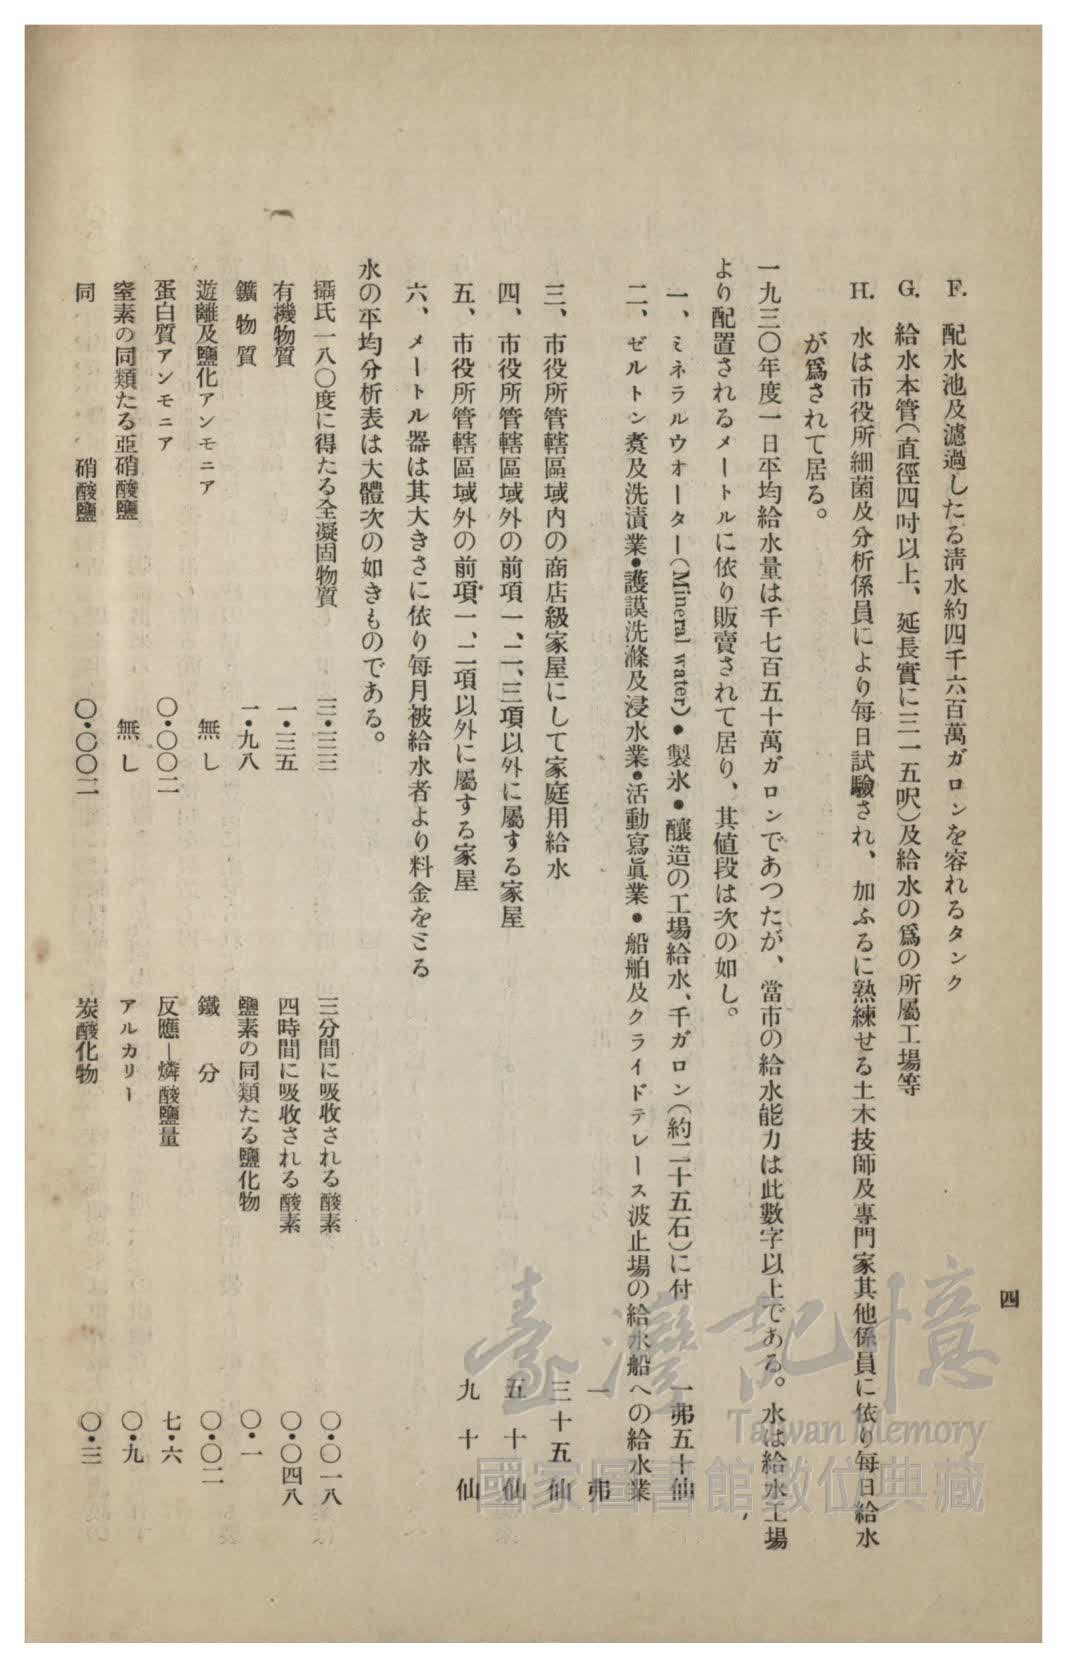 四
F. 配水池及濾過したる淸水約四千六百萬ガロンを容れるタンク
G. 給水本管(直徑四吋以上、延長實に三一五呎)及給水の爲の所屬工場等
H. 水は市役所細菌及分析係員により每日試驗され、加ふるに熟練せる土木技師及專門家其他係員に依り每日給水
が爲されて居る。
一九三〇年度一日平均給水量は千七百五十萬ガロンであつたが、當市の給水能力は此數字以上である。水は給水工場
より配置されるメートルに依り販賣されて居り、其値段は次の如し。
一、ミネラルウオーター(Mineral water)●製氷●釀造の工場給水、千ガロン(約二十五石)に付 一弗五十仙
二、ゼルトン煑及洗濱業●護謨洗滌及浸水業●活動寫眞業●船舶及クライドテレース波止場の給水船への給水業
一弗
三、市役所管轄區域内の商店級家屋にして家庭用給水 三十五仙
四、市役所管轄區域外の前項一、二、三項以外に屬する家屋 五十仙
五、市役所管轄區域外の前項一、二項以外に屬する家屋 九十仙
六、メートル器は其大きさに依り每月被給水者より料金をとる
水の平均分析表は大體次の如きものである。
攝氏一八〇度に得たる全凝固物質 三・三三 三分間に吸收される酸素 〇・〇一八
有機物質 一・三五 四時間に吸收される酸素 〇・〇四八
鑛物質 一・九八 鹽素の同類たる鹽化物 〇・一
遊離及鹽化アンモニア 無し 鐵分 〇・〇二
蛋白質アンモニア 〇・〇〇二 反應―燐酸鹽量 七・六
窒素の同類たる亞硝酸鹽 無し アルカリー 〇・九
同 硝酸鹽 〇・〇〇二 炭酸化物 〇・三
臺灣記憶
Taiwan Memory
國家圖書館數位典藏